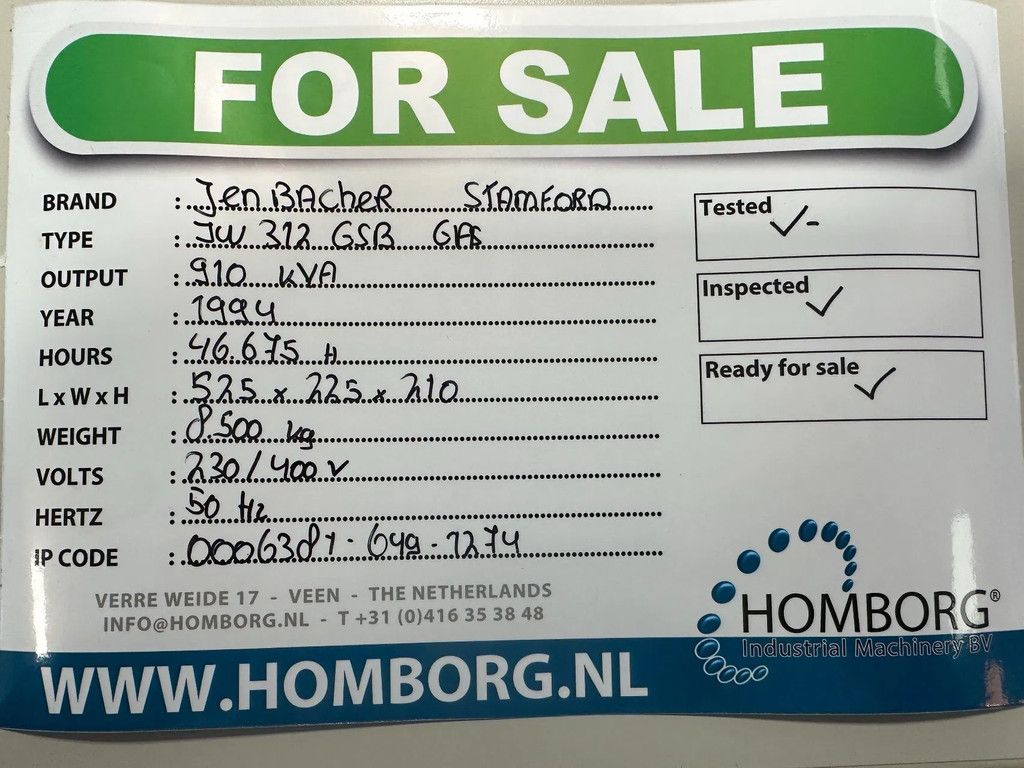 FOR SALE
BRAND : JenBAcheR STAMFORD
TYPE : JW 312 GSB GAS
OUTPUT : 910 kVA
YEAR : 1994
HOURS : 46.675 H
L x W x H : 525 x 225 x 210
WEIGHT : 8.500 kg
VOLTS : 230/400 V
HERTZ : 50 Hz
IP CODE : 0006381-649-1274
Tested ✓-
Inspected ✓
Ready for sale ✓
VERRE WEIDE 17 - VEEN - THE NETHERLANDS
INFO@HOMBORG.NL - T +31 (0)416 35 38 48
HOMBORG®
Industrial Machinery BV
WWW.HOMBORG.NL